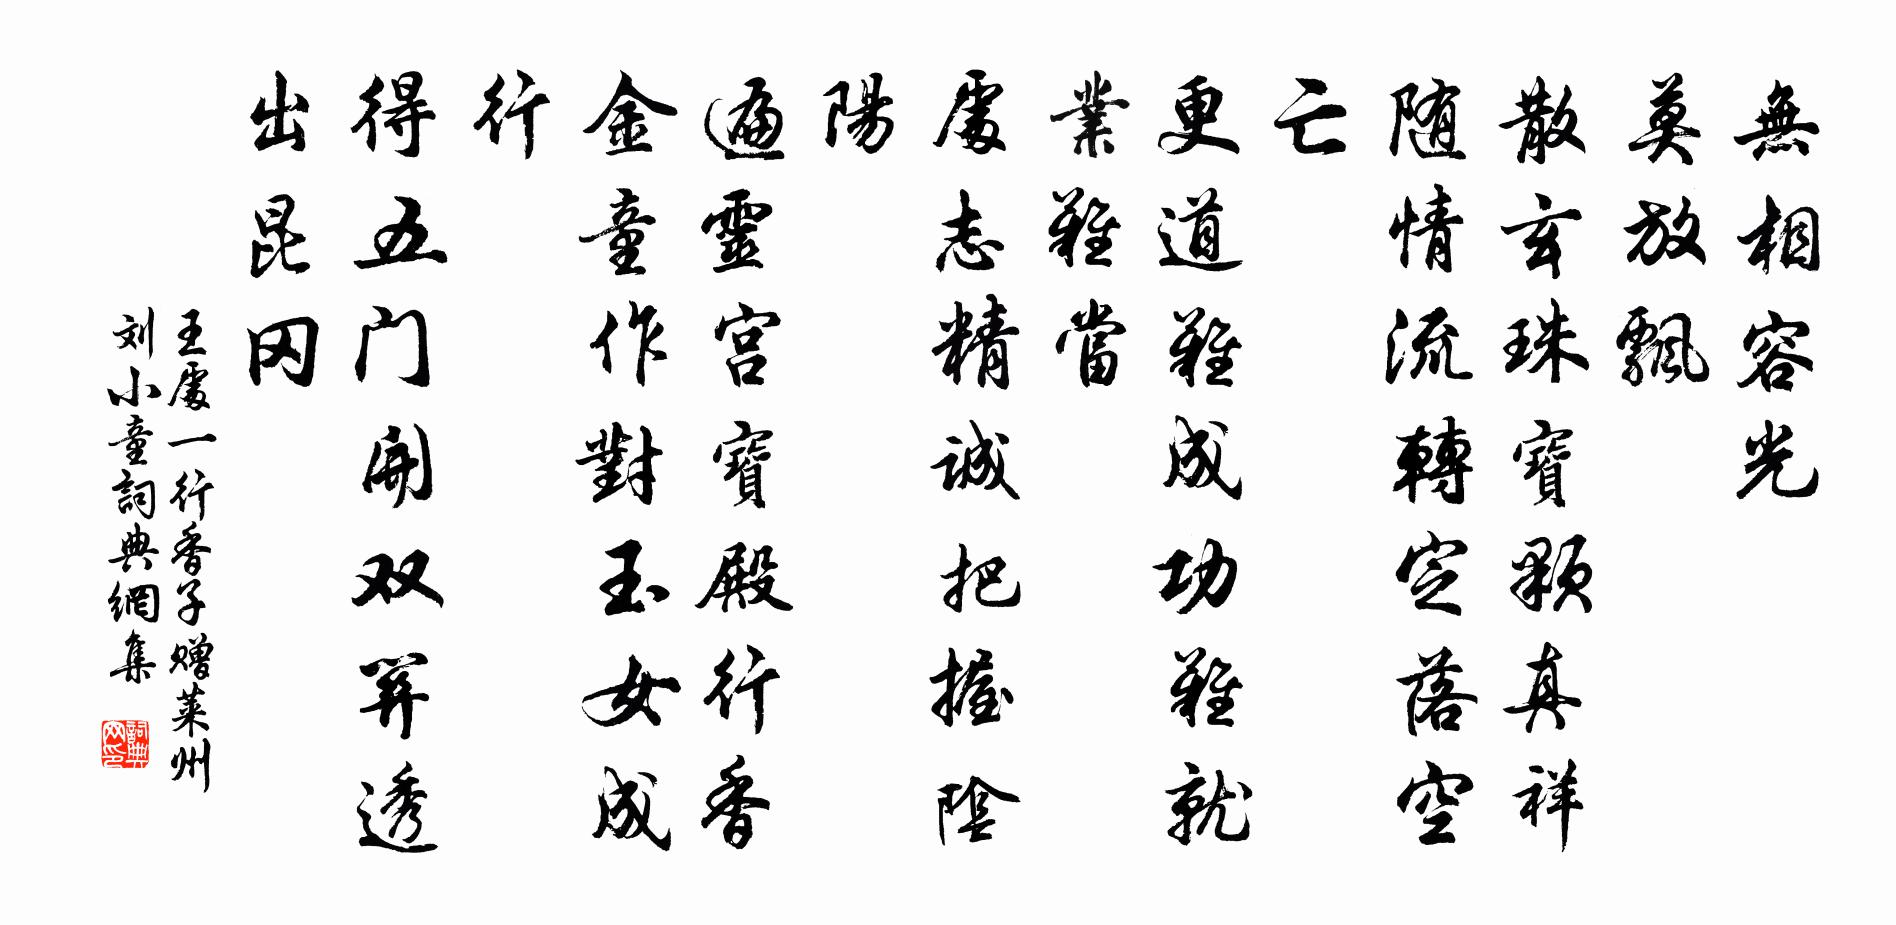 無相容光
莫放飄
散玄珠寶顆真祥
随情流轉定落空
亡
更道難成功難就
業難當
處志精誠把握陰
陽
遍靈宮寶殿行香
金童作對玉女成
行
得五门開双关透
出昆冈
王處一行香子赠莱州
刘小童詞典網集
詞典
网印